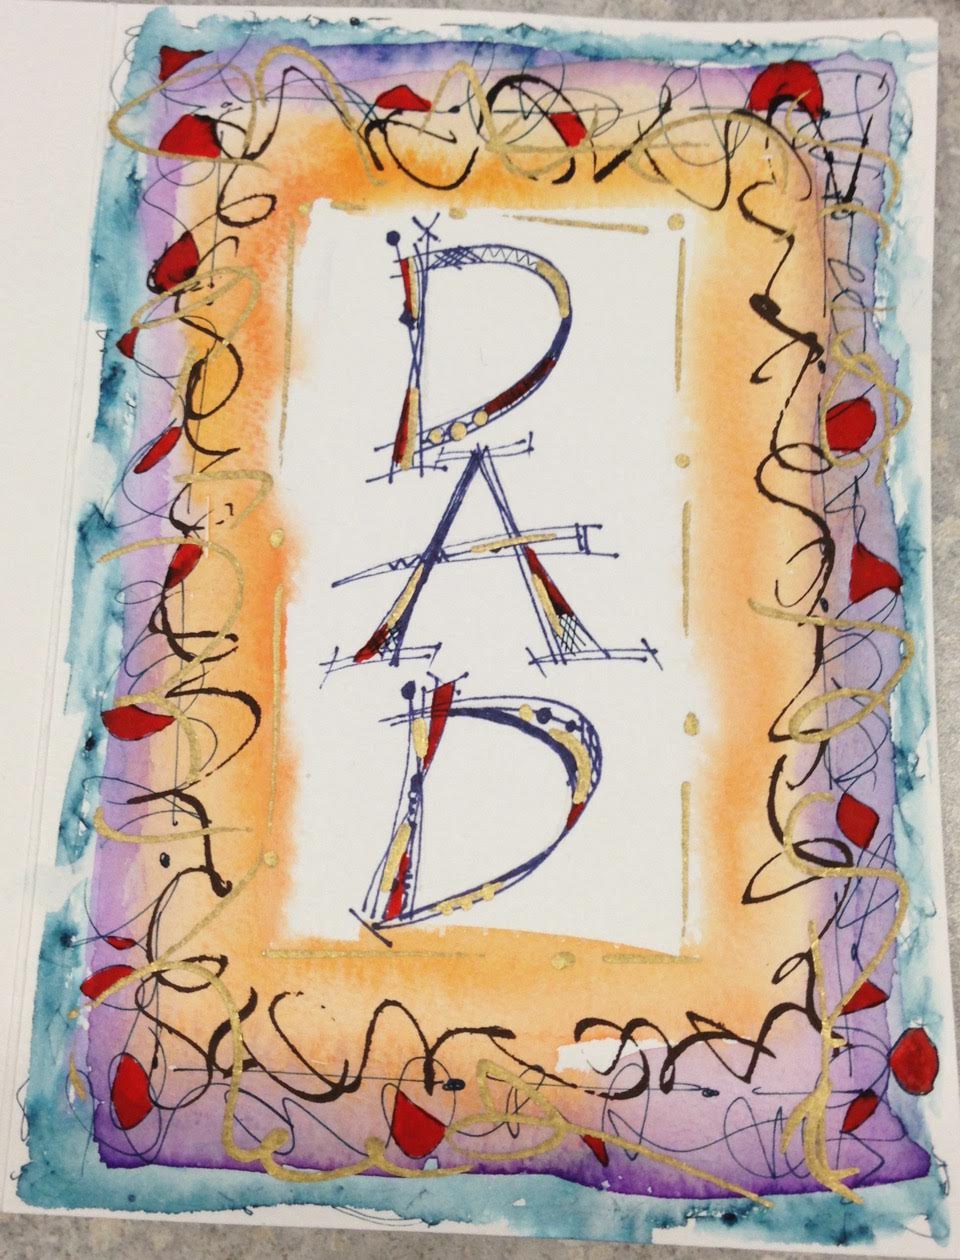 D
A
D